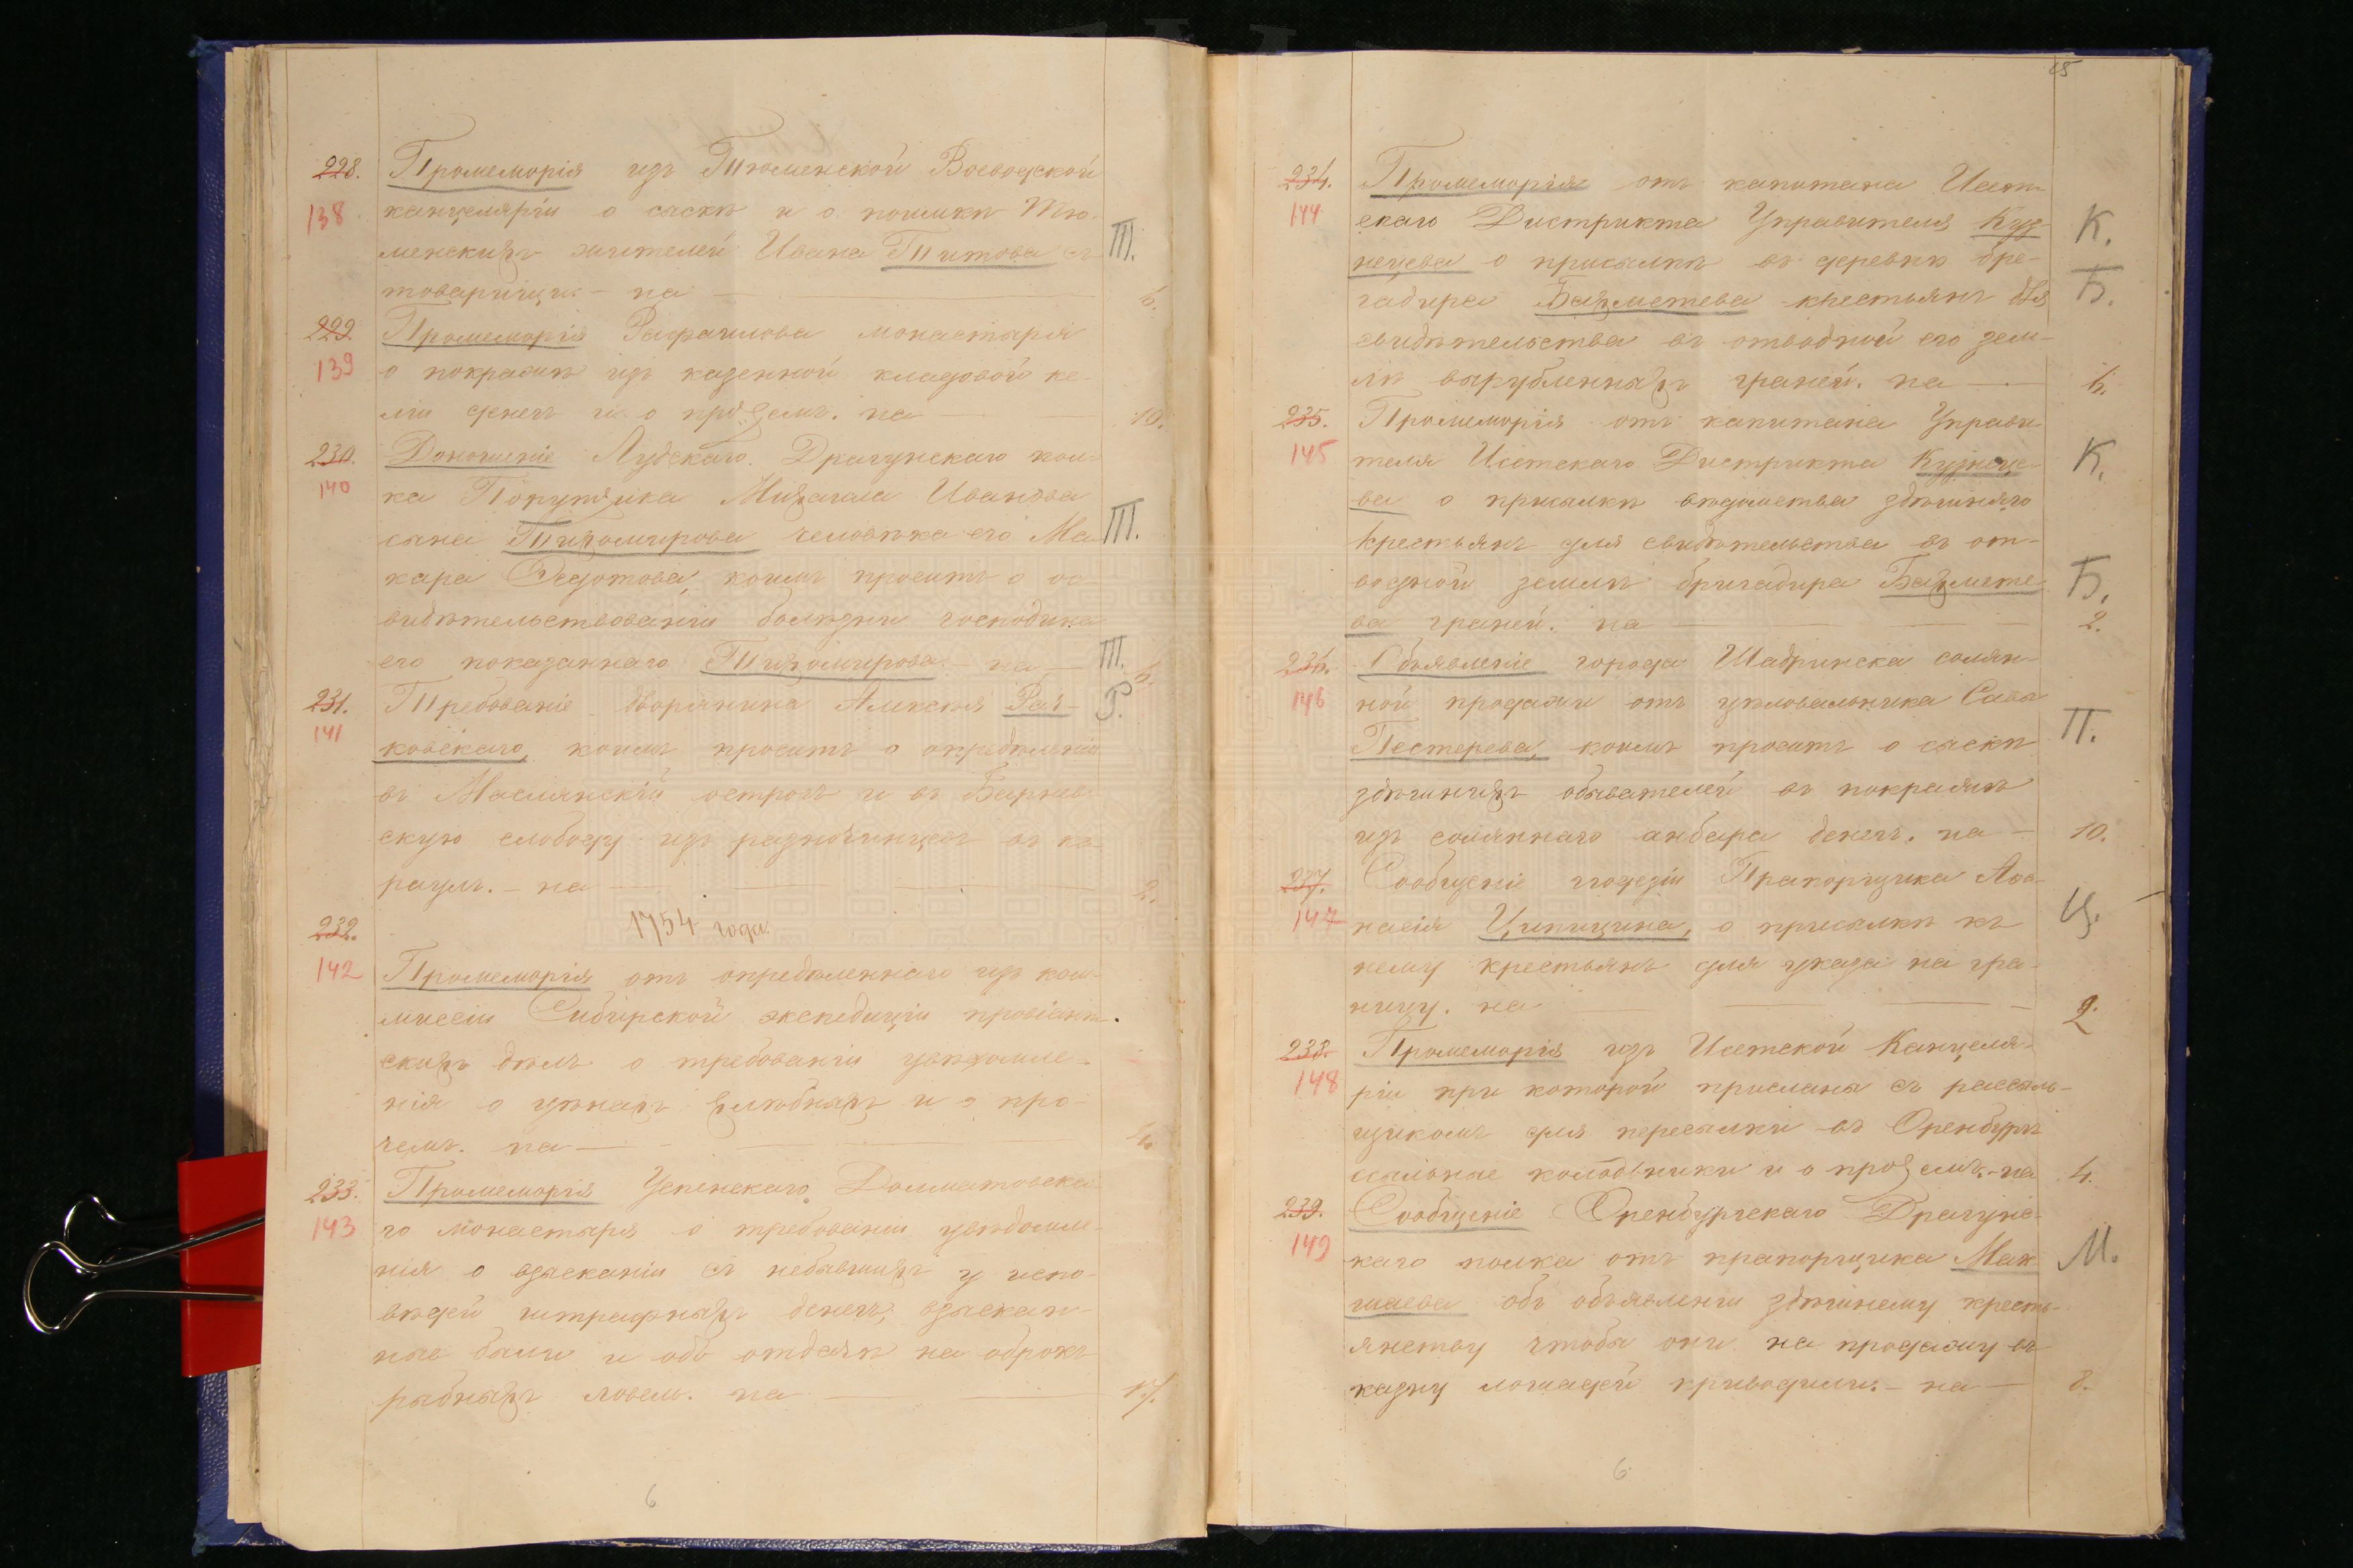 228. Промеморія изъ Тюменской Воеводской
138 канцеляріи о сыскѣ и о поимкѣ Тю-
менскихъ жителей Ивана Титова съ Т.
товарищи – на — 6.
229. Промеморія Рафаилова монастыря
139 о покражѣ изъ казенной кладовой ке-
ліи денегъ и о прочемъ. на — 10.
230. Доношеніе Лудскаго Драгунскаго пол-
140 ка Порутчика Михагала Иванова
сына Тихомирова человѣка его Ма- Т.
кара Федотова, коимъ проситъ о ос-
видѣтельствованіи болѣзни господина
его показаннаго Тихомирова – на — Т. 6.
231. Требованіе дворянина Алексѣя Рач- Р.
141 ковскаго, коимъ проситъ о опредѣленіи
въ Маслянскій острогъ и въ Барнев-
скую слободу изъ разночинцевъ въ ка-
раулъ. – на — 2.
1754 года
232. Промеморія отъ опредѣленнаго изъ ком-
142 мисеіи Сибирской экспедиціи провіант-
скихъ дѣлъ о требованіи увѣдомле-
нія о цѣнахъ хлѣбныхъ и о про-
чемъ. на —
233. Промеморія Успенскаго Долматовска-
143 го монастыря о требованіи увѣдомле-
нія о взысканіи съ небывшихъ у испо-
вѣдей штрафныхъ денегъ, взыскан-
ные были и объ отдачѣ на оброкъ
рыбныхъ ловель. на — 17.
6
15
234. Промеморія отъ капитана Исет-
144 скаго Дистрикта Управителя Куз- К.
нецева о присылкѣ въ деревню бре-
гадира Бахметева крестьянъ для Б.
свидѣтельства въ отводной его зем-
лѣ вырубленныхъ граней. на — 6.
235. Промеморія отъ капитана Управи-
145 теля Исетскаго Дистрикта Кузнеце- К.
ва о присылкѣ вѣдомства здѣшняго
крестьянъ для свидѣтельства въ от-
водной землѣ бригадира Бахмете- Б.
ва граней. на — 2.
236. Объявленіе города Шадринска солян-
146 ной продажи отъ цѣловальника Савы
Пестерева, коимъ проситъ о сыскѣ П.
здѣшнихъ обывателей въ покражѣ
изъ солянаго анбара денегъ. на — 10.
237. Сообщеніе геодезіи Прапорщика Афа-
147 насія Ципицина, о присылкѣ къ Ц.
нему крестьянъ для указа на гра-
ницу. на — 2.
238. Промеморія изъ Исетской Канцеля-
148 ріи при которой присланы съ разсыль-
щикомъ для пересылки въ Оренбургъ
ссыльные колодники и о прочемъ. – на 4.
239. Сообщеніе Оренбургскаго Драгунс-
149 каго полка отъ прапорщика Мак- М.
шаева объ объявленіи здѣшнему кресть-
янству чтобы они на продажу въ
казну лошадей приводили. – на — 8.
6